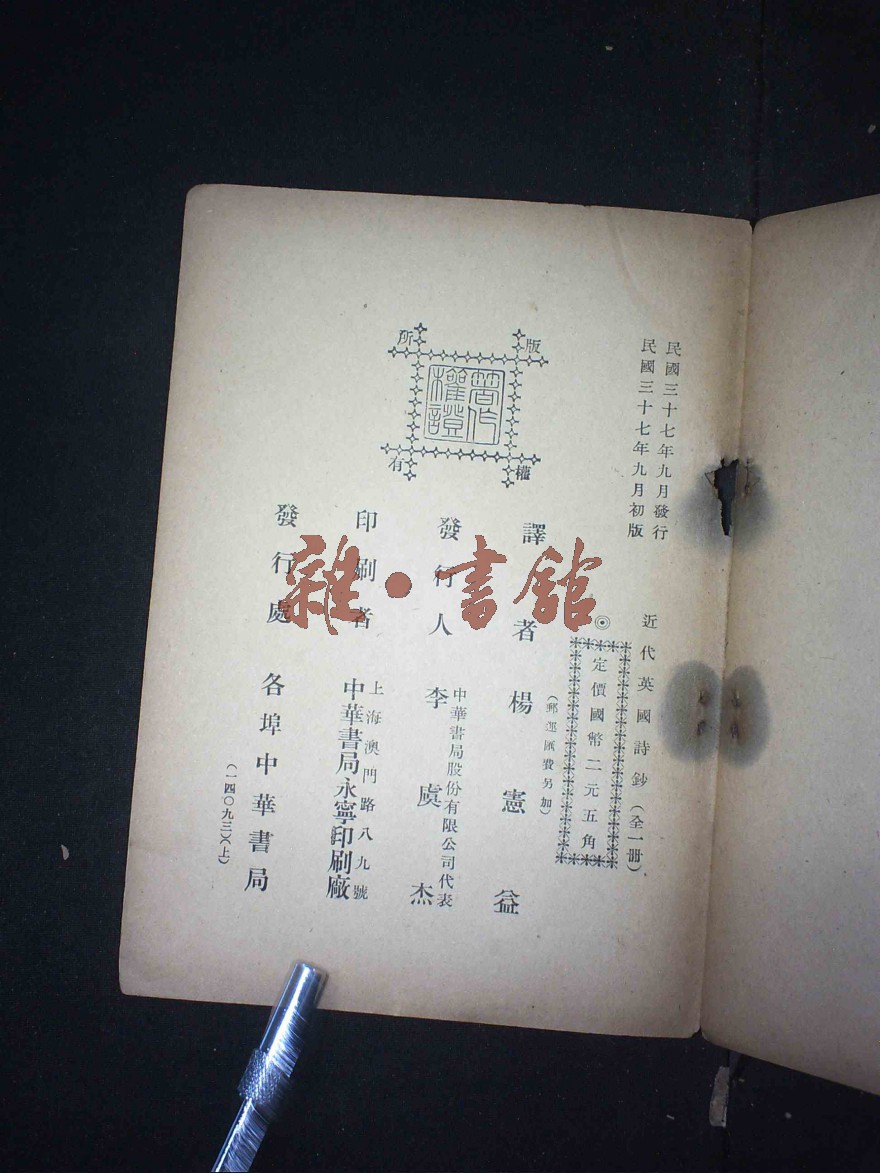 民國三十七年九月發行
民國三十七年九月初版
近代英國詩鈔（全一冊）
◎定價國幣二元五角
（郵運匯費另加）
譯者 楊憲益
中華書局股份有限公司代表
發行人 李虞杰
上海澳門路八九號
印刷者 中華書局永寧印刷廠
發行處 各埠中華書局
（一四〇九三）（上）
版權所有
著作權證
雜·書館